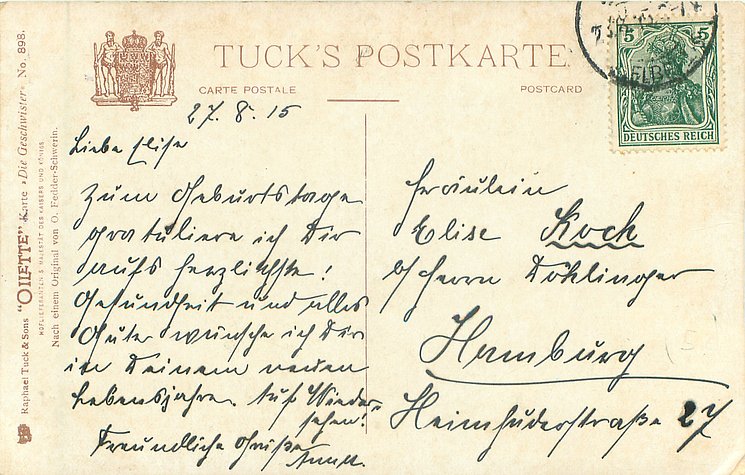 TUCK'S POSTKARTE
CARTE POSTALE
POSTCARD
27. 8. 15
Liebe Elise
Zum Geburtstage
gratuliere ich Dir
aufs herzlichste!
Gesundheit und alles
Gute wünsche ich Dir
in Deinem neuen
Lebensjahre. Auf Wieder-
sehen!
Freundliche Grüße
Fräulein
Elise Koch
b/ Herrn Döhlinger
Hamburg
Heimhuderstraße 27
5 5
DEUTSCHES REICH
Raphael Tuck & Sons "OILETTE" Karte »Die Geschwister« No. 898.
HOFLIEFERANTEN S. MAJESTÄT DES KAISERS UND KÖNIGS
Nach einem Original von O. Fedder-Schwerin.